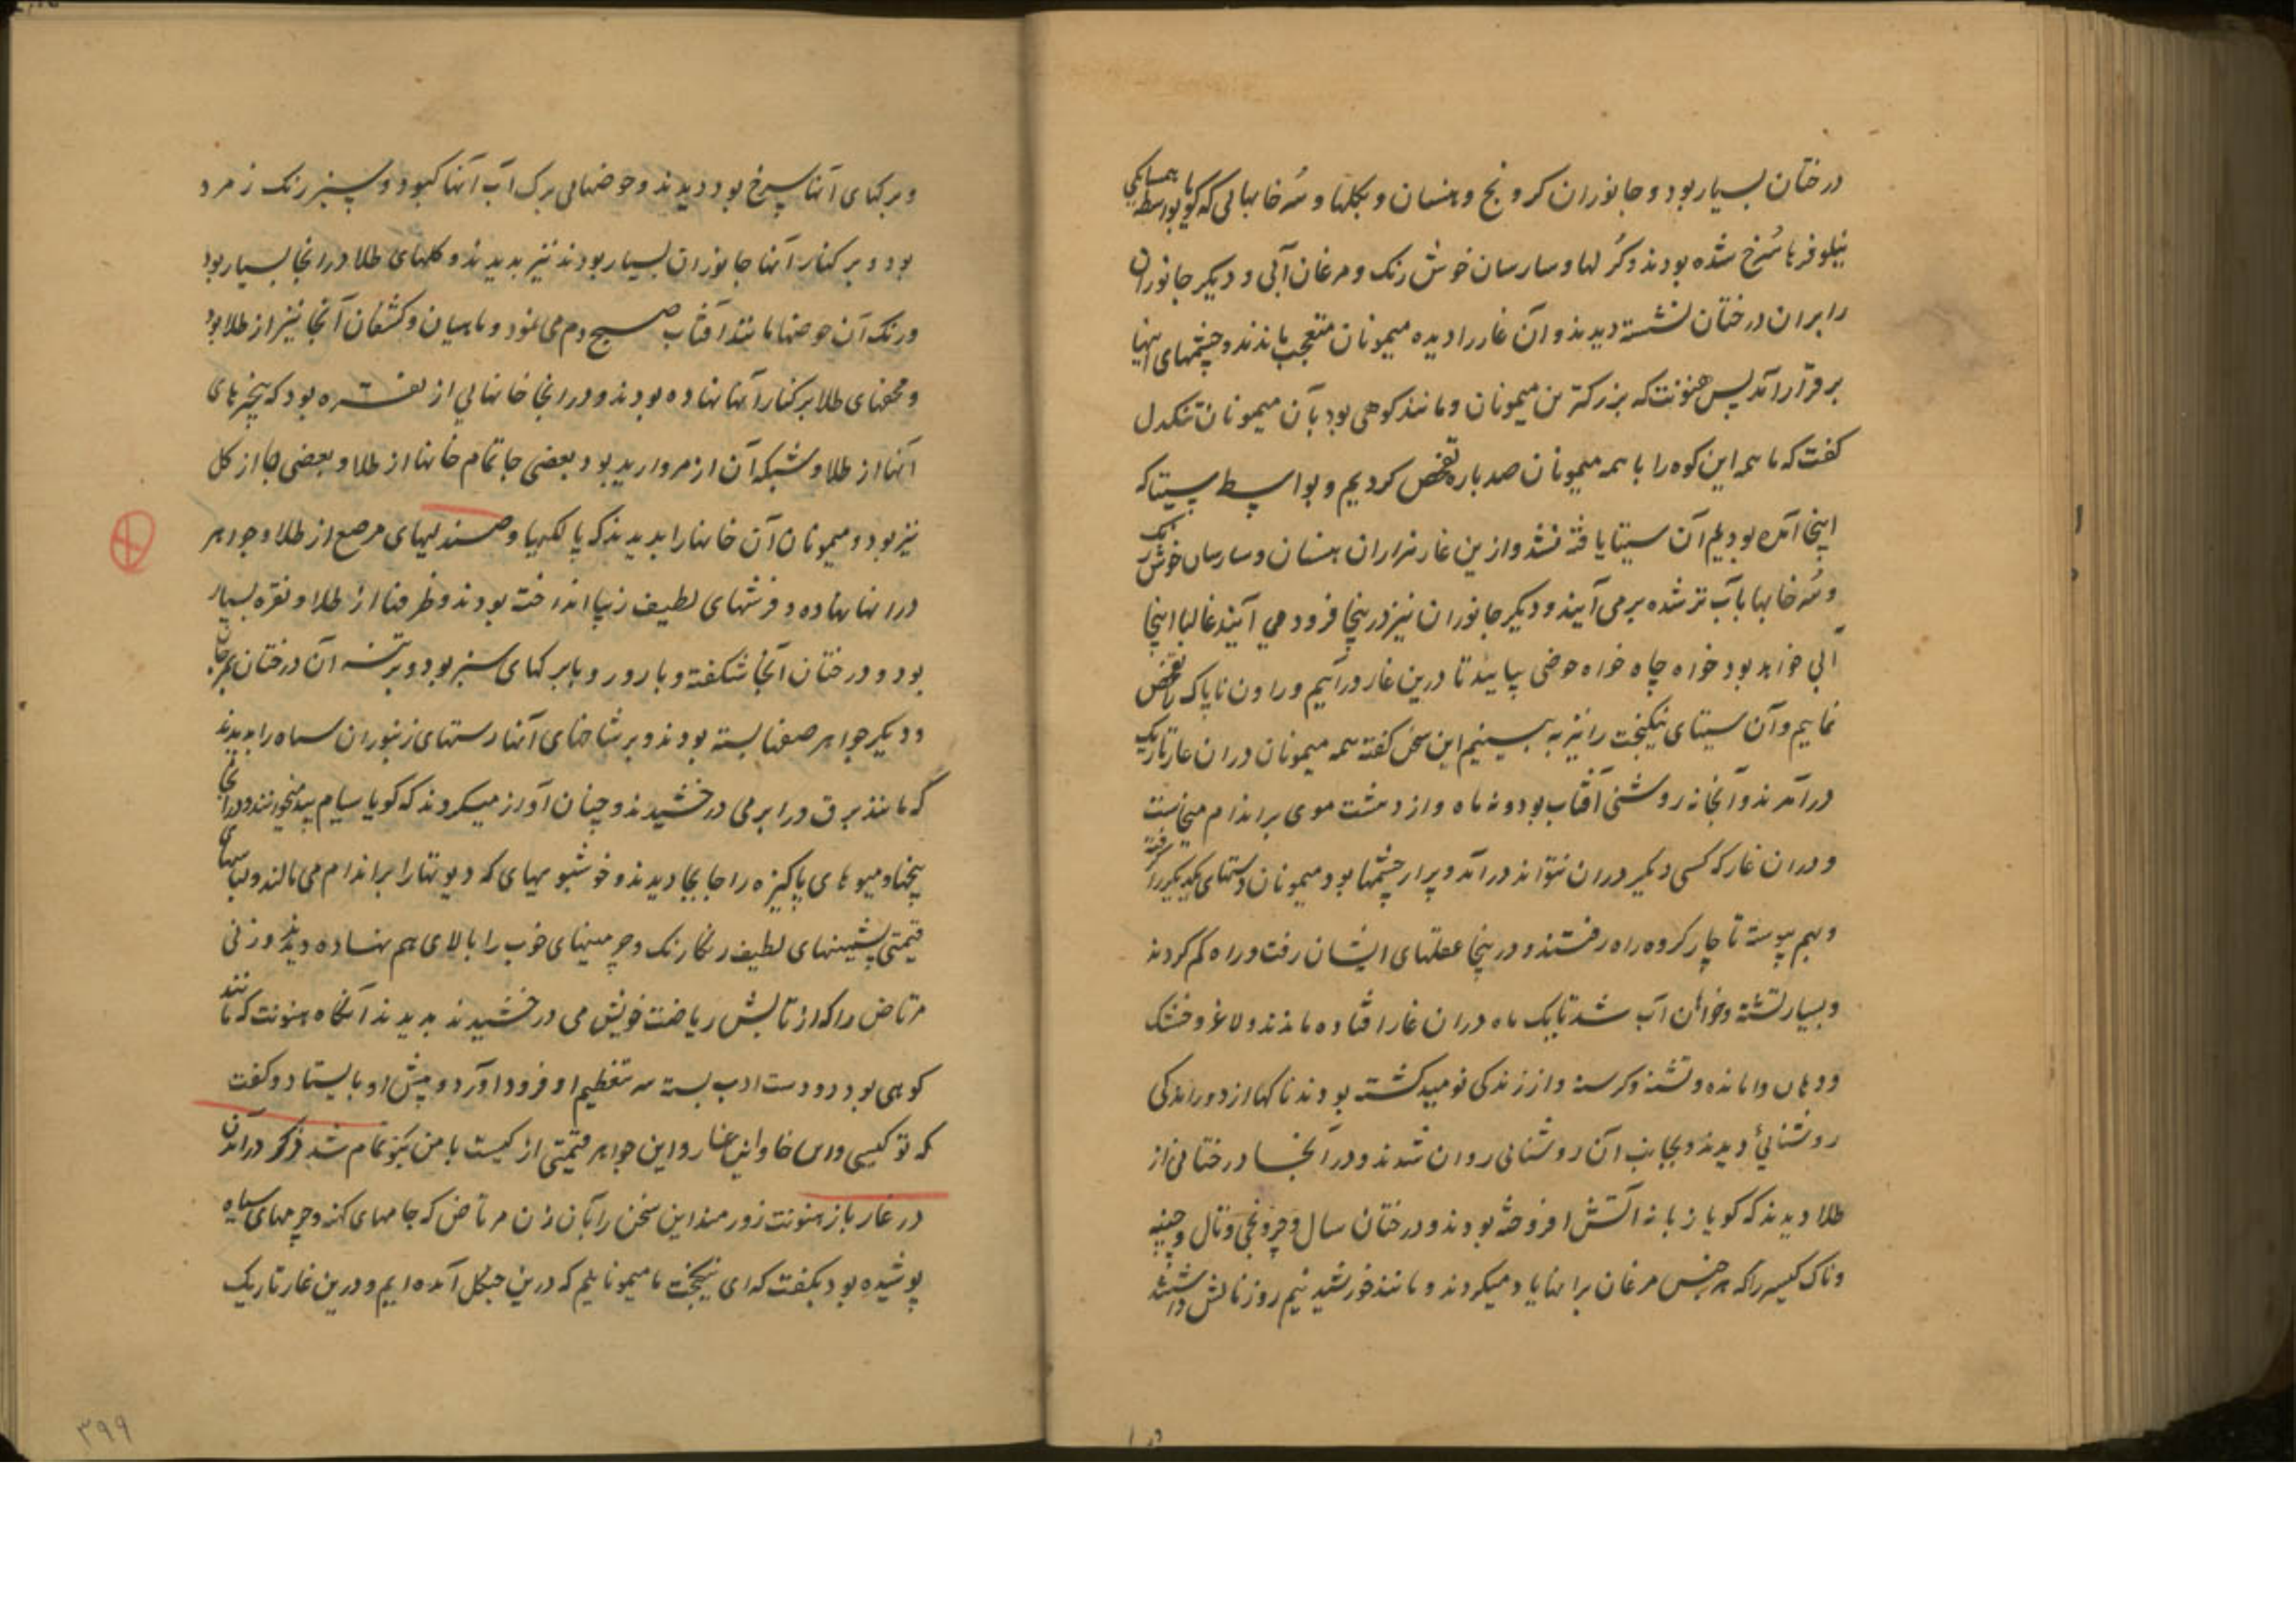 درختان بسیار بود و جانوران کرونج و هنسان و بکلها و سرخابهایی که گویا بواسطه همسایگی
نیلوفرها سُرخ شده بودند و کُرلها و سارسان خوش رنک و مرغان آبی و دیکر جانوران
را بران درختان نشسته دیدند و آن غار را دیده میمونان متعجب بماندند و چشمهای اینها
برقرار آمد پس هنونت که بزرکترین میمونان و مانند کوهی بود بآن میمونان تنکدل
کفت که ما همه این کوه را با همه میمونان صد بار تفحص کردیم و بواسطه سیتا که
اینجا آمده بودیم آن سیتا یافته نشد و ازین غار هزاران هنسان و سارسان خوش رنک
و سُرخابها بآب تر شده برمی آیند و دیکر جانوران نیز درینجا فرود می آیند غالبا اینجا
آبی خواهد بود خواه چاه خواه حوضی بیایید تا درین غار درآییم و راون ناپاک را تفحص
نماییم و آن سیتای نیکبخت را نیز به بینیم این سخن کفته همه میمونان دران غار تاریک
درآمدند و آنجا نه روشنی آفتاب بود و نه ماه و از دهشت موی بر اندام میخاست
و دران غار که کسی دیکر دران نتواند درآمد و پر از چشمها بود میمونان دستهای یکدیکر را کرفته
و بهم پیوسته تا چار کروه راه رفتند و درینجا عقلهای ایشان رفت و راه کم کردند
و بسیار تشنه و خواهان آب شد تا یک ماه دران غار افتاده ماندند و لاغر و خشک
و دهان وامانده و تشنه و کرسنه و از زندکی نومید کشته بودند ناکهان از دور اندکی
روشنائی دیدند و بجانب آن روشنائی روان شدند و در آنجا درختانی از
طلا دیدند که کویا زبانه آتش افروخته بودند و درختان سال و چرونجی و تال و چنپه
و ناک کیسر را که هر جنس مرغان بر انها یاد میکردند و مانند خورشید نیم روز تابش داشتند
و برکهای آنها سرخ بود دیدند و حوضهایی بزرک آب آنها کبود و سبز رنک زمرد
بود و بر کنار آنها جانوران بسیار بودند نیز بدیدند و کلهای طلا در انجا بسیار بود
و رنک آن حوضها مانند آفتاب صبح دم می نمود و ماهیان و کشفان آنجا نیز از طلا بود
و محفهای طلا بر کنار آنها نهاده بودند و در انجا خانهایی از نقره بود که پنجرهای
آنها از طلا و شبکه آن از مروارید بود بعضی جا تمام خانها از طلا و بعضی جا از کل
نیز بود و میمونان آن خانها را بدیدند که پالکیها و صندلیهای مرصع از طلا و جواهر
در انها نهاده و فرشهای لطیف زیبا انداخته بودند و ظرفها از طلا و نقره بسیار
بود و درختان آنجا شکفته و بارور و با برکهای سبز بود و بر تنه آن درختان مرجان
و دیکر جواهر صفها بسته بودند و بر شاخهای آنها رستهای زنبوران سیاه را بدیدند
که مانند برق در ابر می درخشیدند و چنان آواز میکردند که کویا سیام بید میخوانند و در آنجا
بیخها و میوهای پاکیزه را جابجا دیدند و خوشبوییهای که دیوتها را بر اندام می مالند و لباسهای
قیمتی پشمینهای لطیف رنکارنک و چرمینهای خوب را بالای هم نهاده دیدند و زنی
مرتاض را که از تابش ریاضت خویش می درخشیدند بدیدند آنکاه هنونت که مانند
کوهی بود رو دست ادب بسته سر تعظیم او فرود آورد و پیش او بایستاد و کفت
که تو کیستی و این خانه و این غار و این جواهر قیمتی از کیست با من بکو تمام شد ذکر درآمدن
در غار باز هنونت زورمند این سخن را بآن زن مرتاض که جامهای کهنه و چرمهای سیاه
پوشیده بود بکفت که ای نیکبخت ما میمونانیم که درین جنکل آمده ایم و درین غار تاریک
۳۹۹